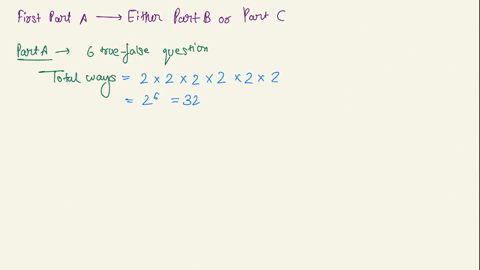 First Part A → Either Part B or Part C
Part A → 6 true-false question
Total ways = 2 × 2 × 2 × 2 × 2 × 2
= 2⁶ = 32